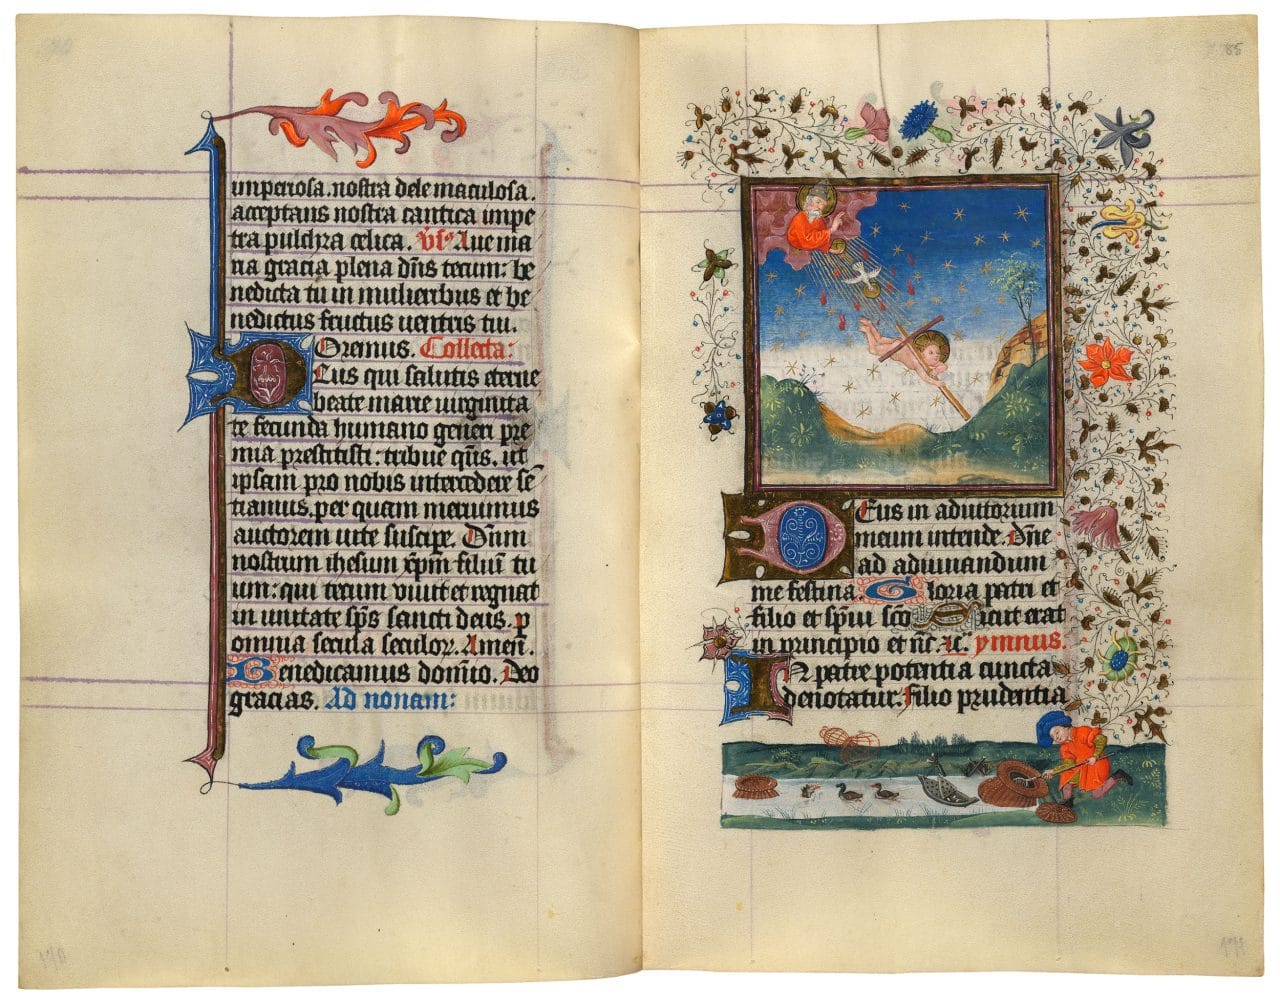 imperiosa. nostra dele maculosa.
acceptans nostra cantica impe
tra pulchra celica. Aue ma
ria gracia plena dn̄s tecum: be
nedicta tu in mulieribus et be
nedictus fructus uentris tui.
Oremus. Collecta:
Deus qui salutis eterne
beate marie uirginita
te fecunda humano generi pre
mia prestitisti: tribue q̄s. ut
ipsam pro nobis intercedere sē
tiamus. per quam meruimus
auctorem uite suscipe. Dn̄m
nostrum ihesum xp̄m filiū tu
um: qui tecum viuit et regnat
in unitate sp̄s sancti deus. p
omnia secula seculoꝝ. Amen.
Benedicamus domīo. Deo
gracias. Ad nonam:
85
Deus in adiutorium
meum intende. Dn̄e
ad adiuuandum
me festina. Gloria patri et
filio et sp̄ui scō Sicut erat
in principio et nc̄. ymnus.
IN patre potentia cuncta
denotatur. Filio prudentia